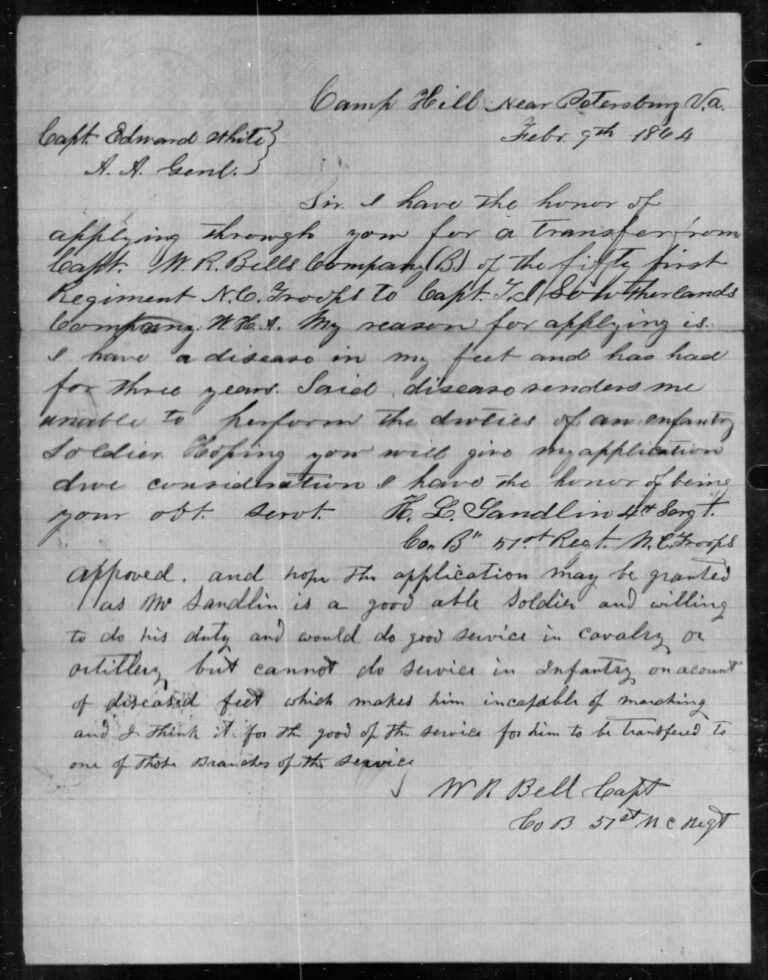 Camp Hill Near Petersburg Va.
Febr. 9th 1864
Capt. Edward White
A. A. Genl.
Sir I have the honor of
applying through you for a transfer from
Capt. W. R. Bells Company (B) of the fifty first
Regiment N.C. Troops to Capt. T. J. Southerlands
Company. My reason for applying is.
I have a disease in my feet and has had
for three years. Said disease renders me
unable to perform the duties of an enfantry
Soldier Hoping you will give my application
due consideration I have the honor of being
your obt. servt. H. L. Sandlin 4th Sergt.
Co. "B" 51st Regt. N.C. Troops
approved. and hope the application may be granted
as Mr Sandlin is a good able Soldier and willing
to do his duty and would do good service in cavalry or
artillery but cannot do service in Infantry on acount
of diseased feet which makes him incapable of marching
and I think it for the good of the service for him to be transfered to
one of those Branches of the service
W R Bell Capt
Co B 51st N C Regt